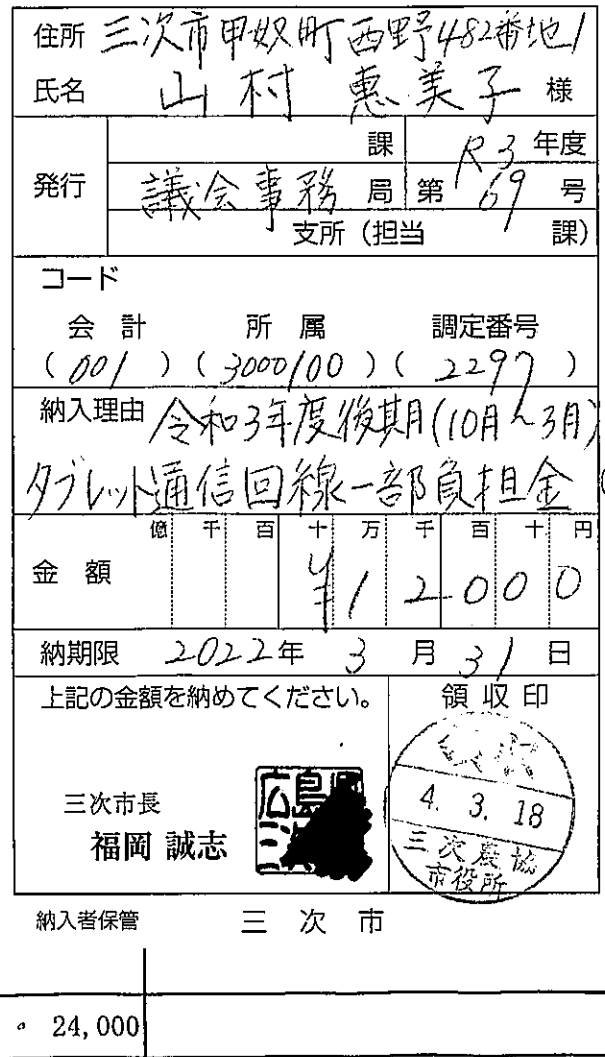 住所 三次市甲奴町西野482番地1
氏名 山村 恵美子 様
発行
課
R3 年度
議会事務 局
第 69 号
支所 (担当 課)
コード
会計 所属 調定番号
(001) (3000100) (2297)
納入理由 令和3年度後期(10月~3月)
タブレット通信回線一部負担金 (
億 千 百 十 万 千 百 十 円
金額 ¥12000
納期限 2022年 3月 31日
上記の金額を納めてください。
領収印
三次市長
福岡 誠志
広島
三次
4. 3. 18
三次農協
市役所
納入者保管 三次市
24,000